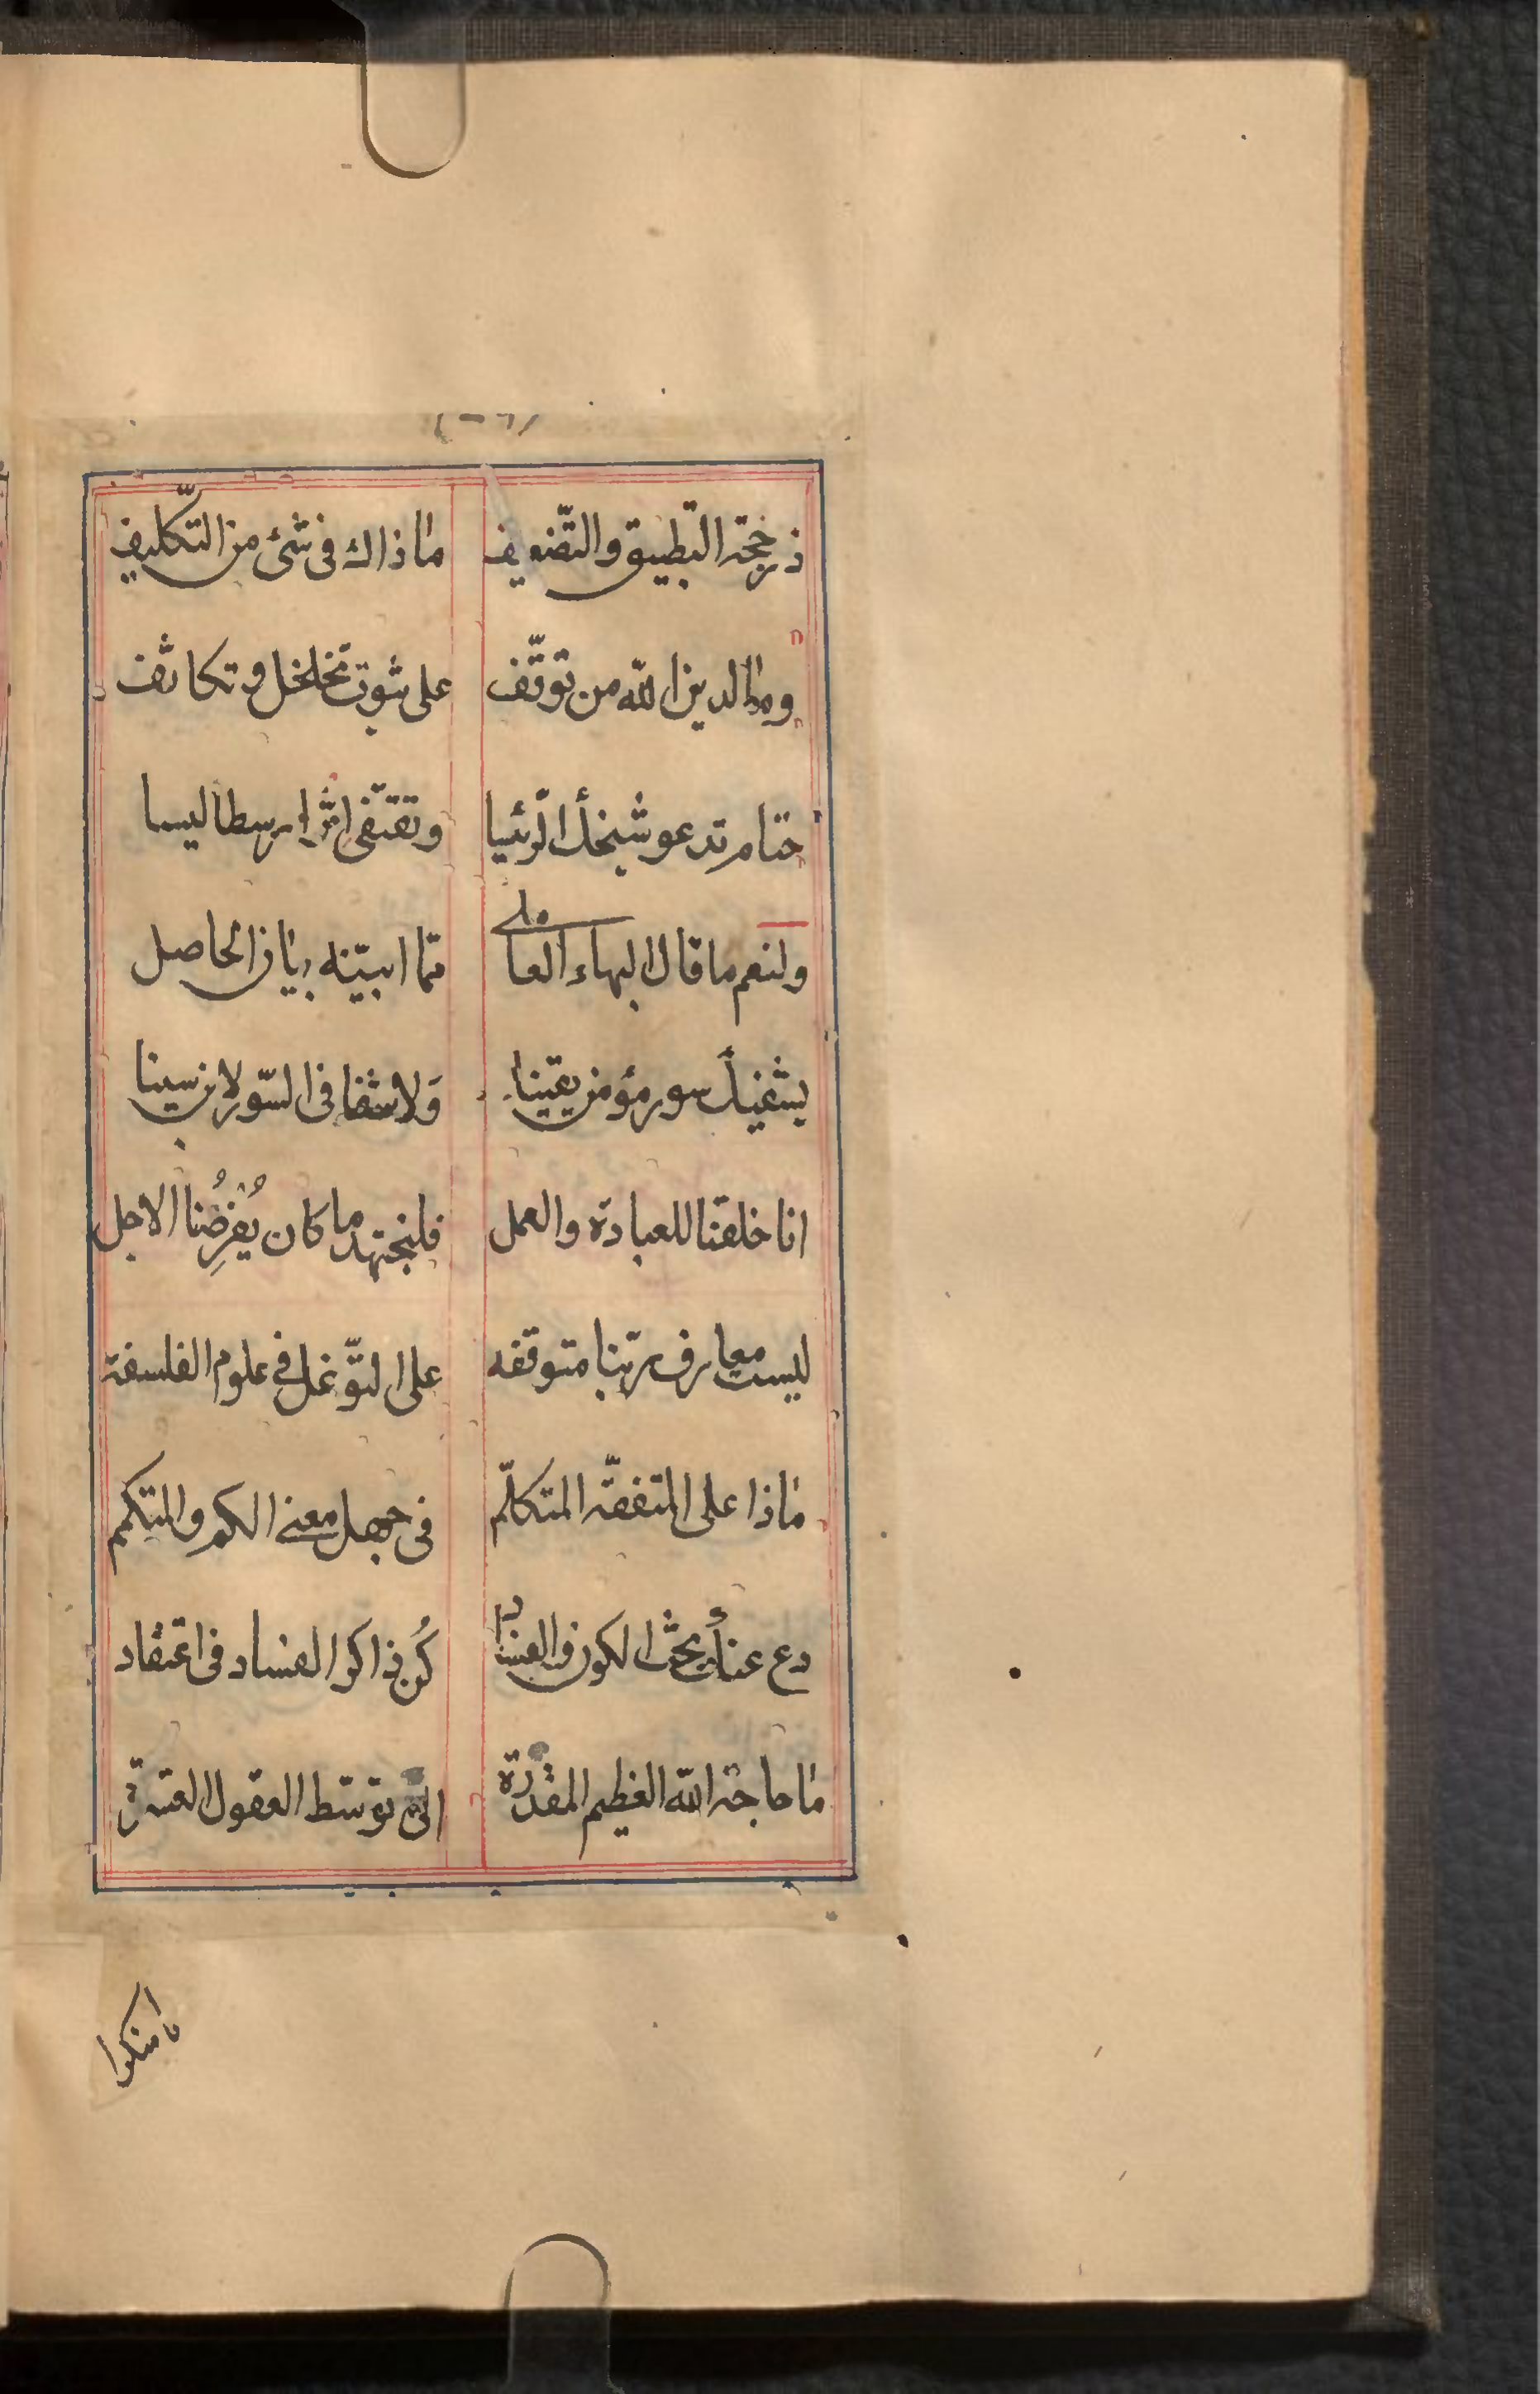 ذر حجة التطبيق والتضعيف ماذاك في شئ من التكليف
وما لدين الله من توقف على ثبوت تخلخل وتكاثف
حتام تدعو شيخك الرئيسا وتقتفي اثر ارسطاليسا
ولنعم ما قال البهاء العاملي مما ابينه بيان الحاصل
يشفيك سور مؤمن يقينا وَلا شفا في السّور لابن سينا
انا خلقنا للعبادة والعمل فلنجتهد ما كان يُفرِضُنا الاجل
ليست معارف ربّنا متوقفه على التوّغل في علوم الفلسفة
ماذا على المتفقّه المتكلّم في جهل معنى الكم والمتكمم
دع عنك بحث الكون والفسادا كُن ذاكر الفساد في اعتقاد
ما حاجة الله العظيم المقدرة الى توسّط العقول العشرة